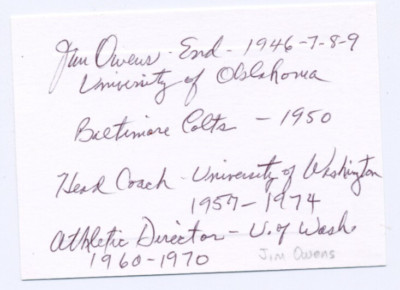 Jim Owens - End - 1946-7-8-9
University of Oklahoma
Baltimore Colts - 1950
Head Coach - University of Washington
1957-1974
Athletic Director - U. of Wash.
1960-1970
Jim Owens